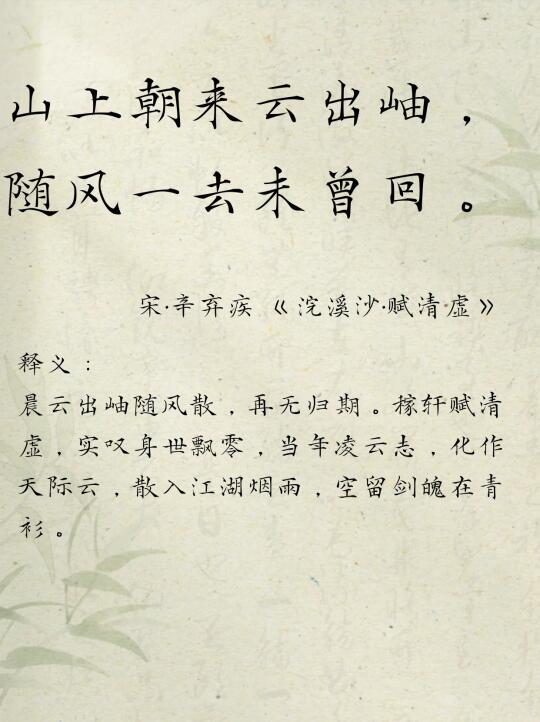 山上朝来云出岫，
随风一去未曾回。
宋·辛弃疾《浣溪沙·赋清虚》
释义：
晨云出岫随风散，再无归期。稼轩赋清
虚，实叹身世飘零，当年凌云志，化作
天际云，散入江湖烟雨，空留剑魄在青
衫。